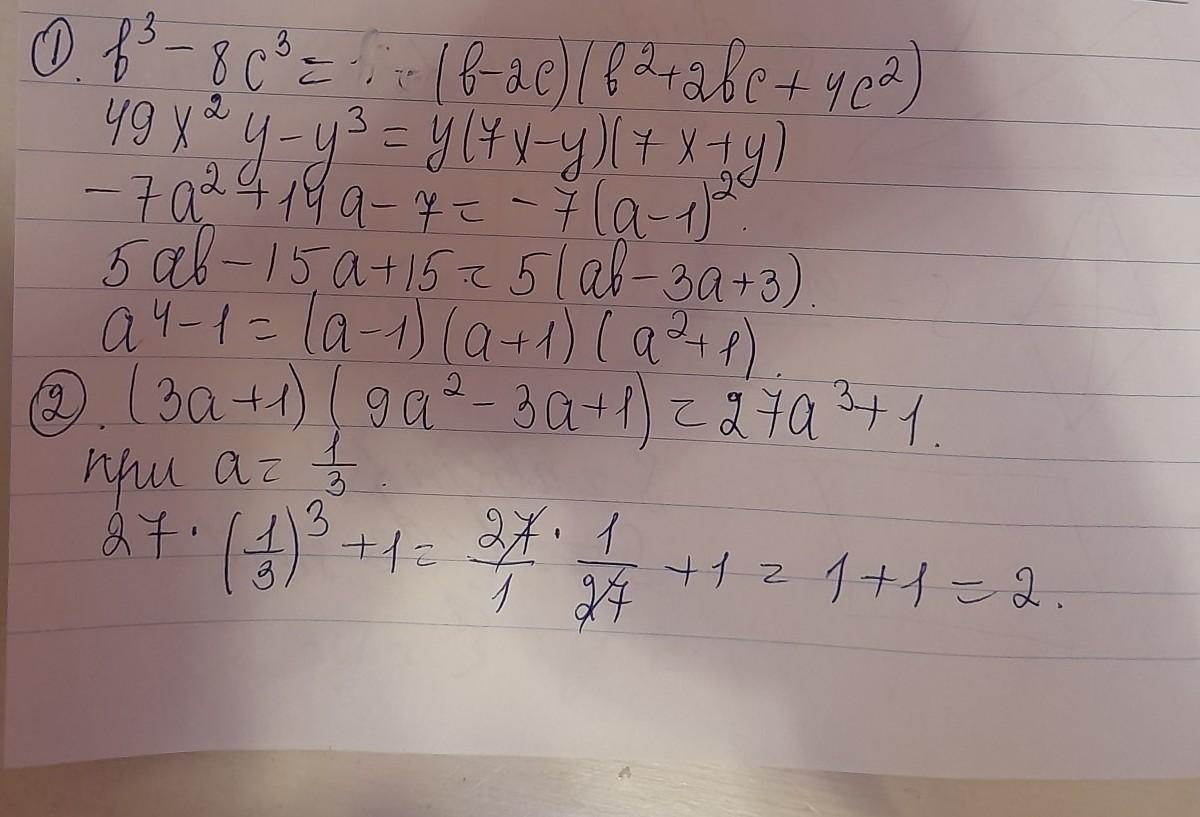 ①. b³ - 8c³ = = (b-2c)(b²+2bc+4c²)
49x²y - y³ = y(7x-y)(7x+y)
-7a²+14a-7 = -7(a-1)².
5ab-15a+15 = 5(ab-3a+3).
a⁴-1 = (a-1)(a+1)(a²+1).
②. (3a+1)(9a²-3a+1) = 27a³+1.
при a = 1/3.
27·(1/3)³+1 = 27/1 · 1/27 + 1 = 1+1 = 2.